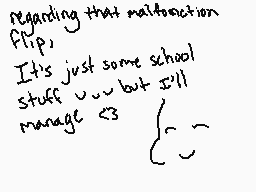 regarding that malfonction
flip,
It's just some school
stuff u u u but I'll
manage <3